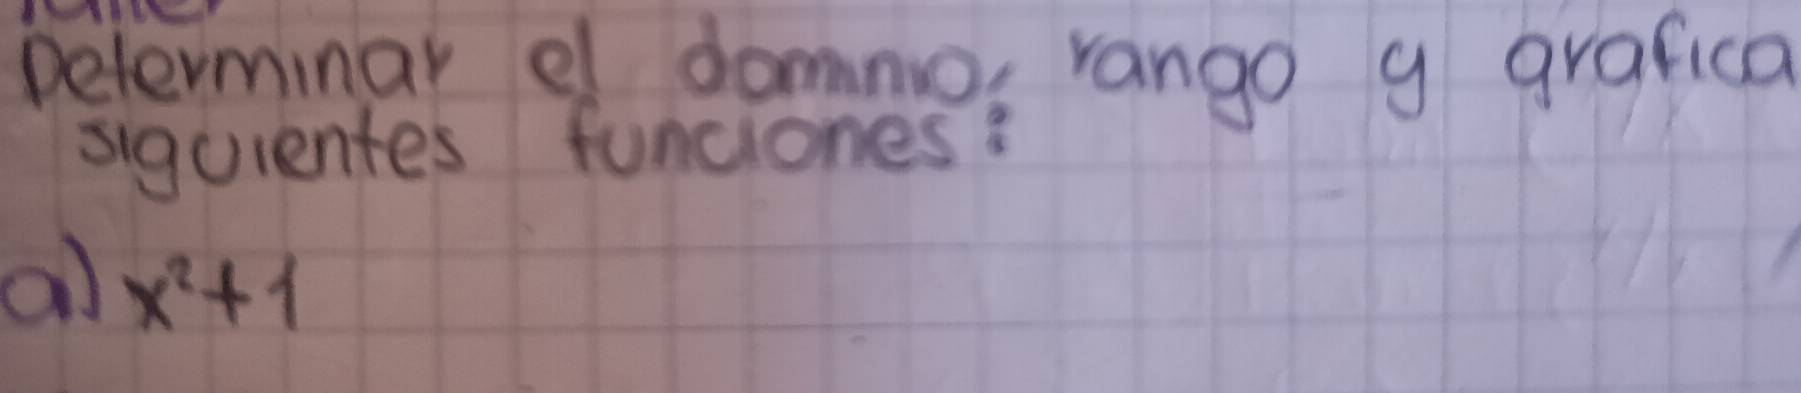 Determinar el dominio, rango y grafica
siguientes funciones:
a) x²+1